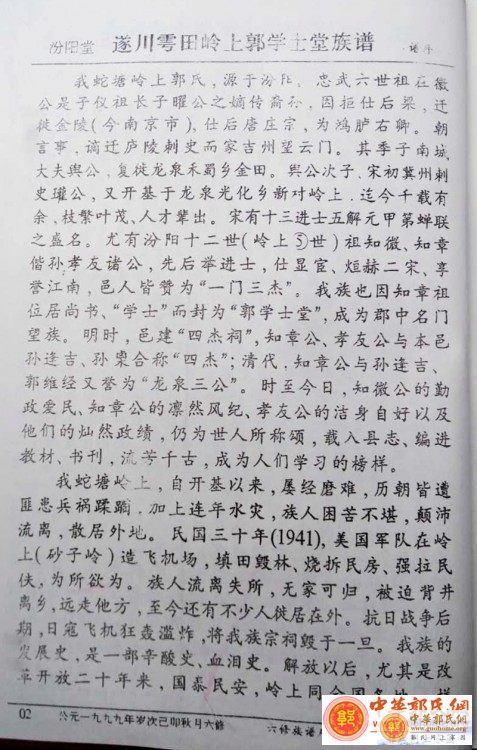 汾阳堂 遂川雩田岭上郭学士堂族谱 ·谱序
我蛇塘岭上郭氏，源于汾阳。忠武六世祖在徽
公是子仪祖长子曜公之嫡传裔孙，因拒仕后梁，迁
徙金陵(今南京市)，仕后唐庄宗，为鸿胪右卿。朝
言事，谪迁庐陵刺史而家吉州望云门。其季子南城
大夫舆公，复徙龙泉禾蜀乡金田。舆公次子，宋初冀州刺
史瓘公，又开基于龙泉光化乡新对岭上，迄今千载有
余，枝繁叶茂、人才辈出。宋有十三进士五解元甲第蝉联
之盛名。尤有汾阳十二世(岭上⑤世)祖知微、知章
偕孙孝友诸公，先后举进士，仕显宦、烜赫二宋、享
誉江南，邑人皆赞为“一门三杰”。我族也因知章祖
位居尚书、“学士”而封为“郭学士堂”，成为郡中名门
望族。明时，邑建“四杰祠”，知章公、孝友公与本邑
孙逢吉、孙䆃合称“四杰”；清代，知章公与孙逢吉、
郭维经又誉为“龙泉三公”。时至今日，知微公的勤
政爱民、知章公的凛然风纪、孝友公的洁身自好以及
他们的灿然政绩，仍为世人所称颂，载入县志、编进
教材、书刊，流芳千古，成为人们学习的榜样。
我蛇塘岭上，自开基以来，屡经磨难，历朝皆遭
匪患兵祸蹂躏，加上连年水灾，族人困苦不堪，颠沛
流离，散居外地。民国三十年(1941)，美国军队在岭
上(砂子岭)造飞机场，填田毁林、烧拆民房、强拉民
伕，为所欲为。族人流离失所，无家可归，被迫背井
离乡，远走他方，至今还有不少人徙居在外。抗日战争后
期，日寇飞机狂轰滥炸，将我族宗祠毁于一旦。我族的
发展史，是一部辛酸史、血泪史。解放以后，尤其是改
革开放二十年来，国泰民安，岭上同全国各地一样
02 公元一九九九年岁次己卯秋月六修 六修族谱
郭
中华郭氏网
郭氏网上家园